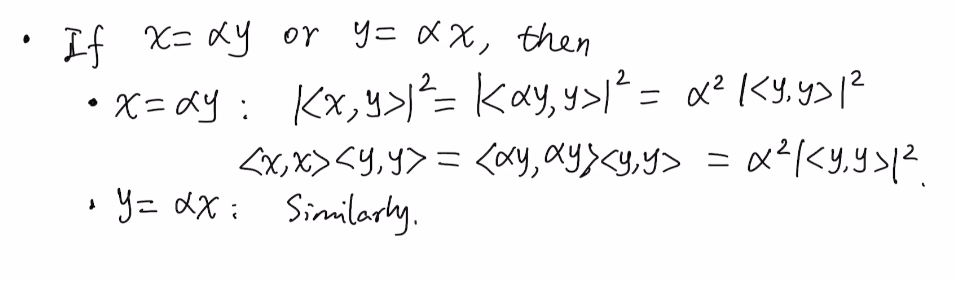 • If x = αy or y = αx, then
• x = αy : |<x,y>|² = |<αy,y>|² = α² |<y,y>|²
<x,x><y,y> = <αy,αy><y,y> = α²|<y,y>|².
• y = αx : Similarly.